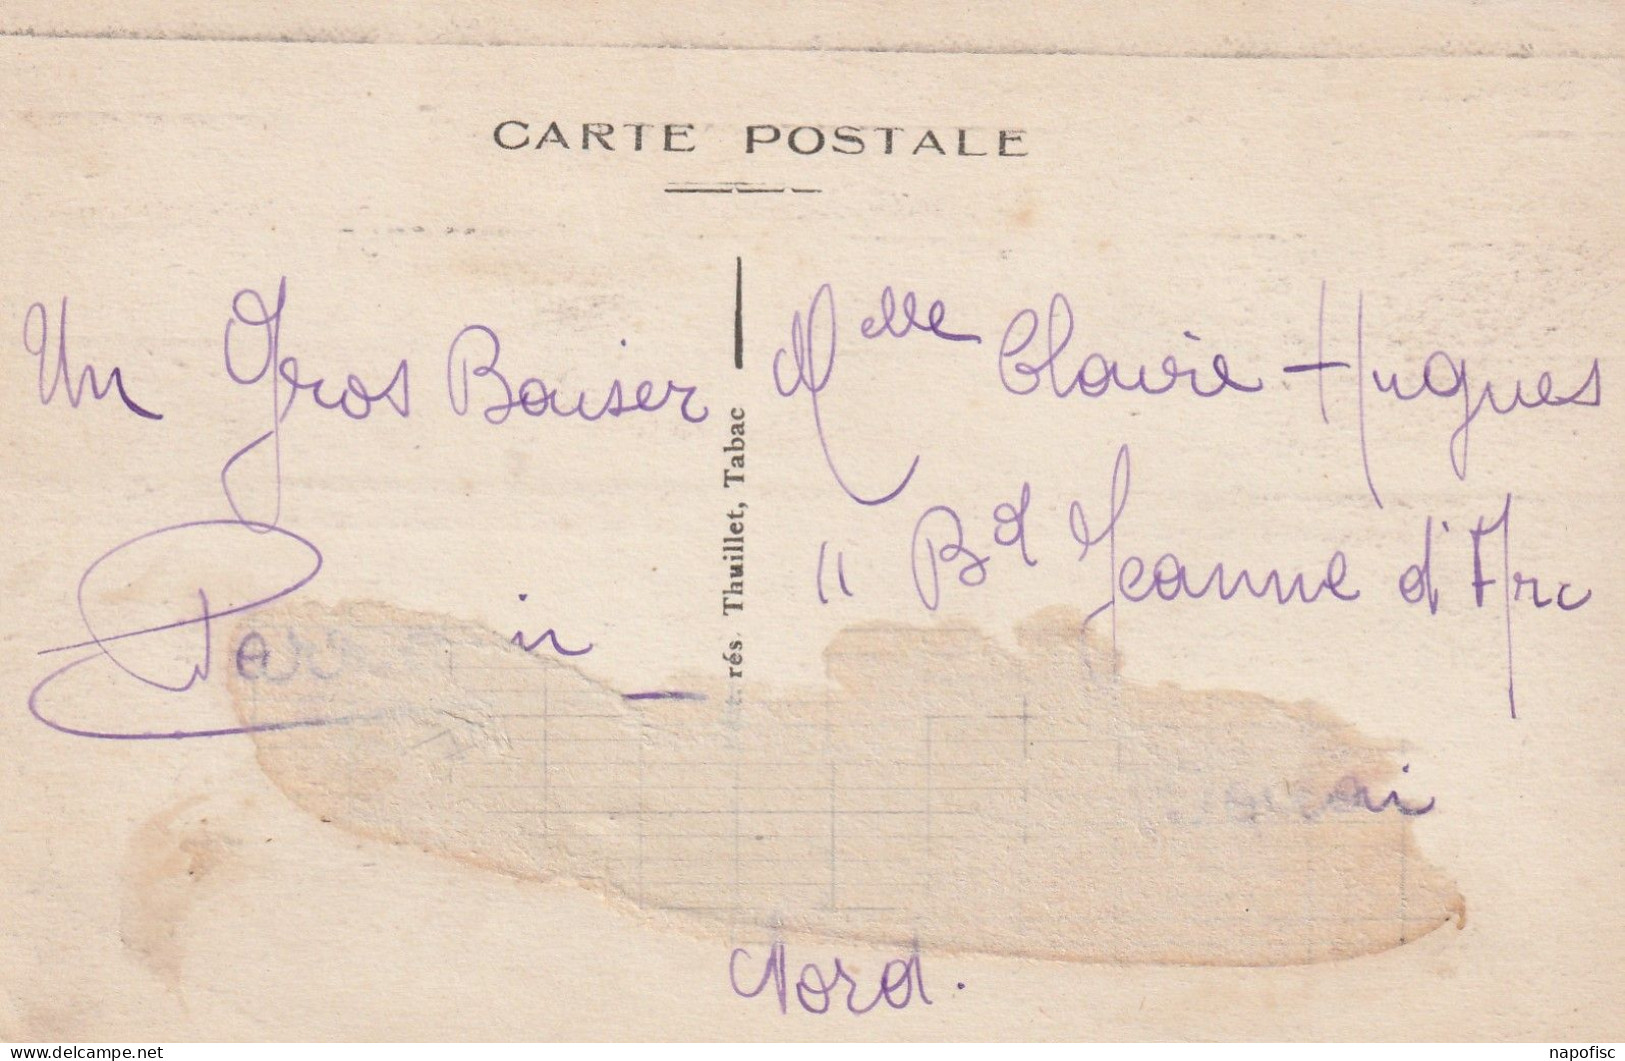 CARTE POSTALE
Un Gros Baiser
in
rés. Thuillet, Tabac
Melle Claire Hugues
11 Bd Jeanne d'Arc
Nord.
delcampe.net
napofisc